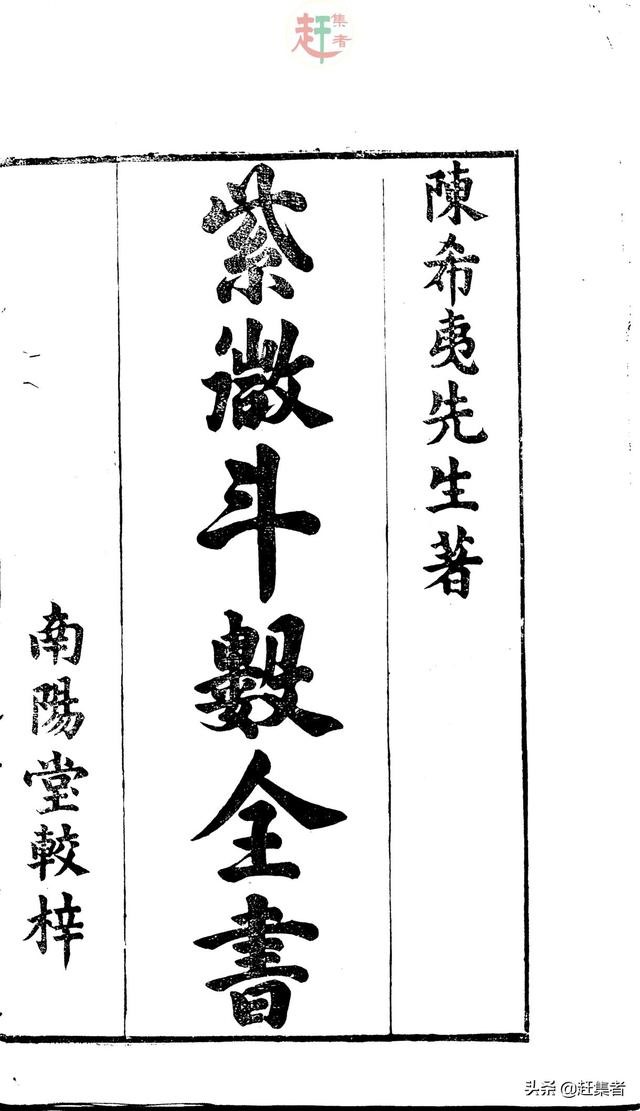 陳希夷先生著
紫微斗數全書
南陽堂較梓
赶集者
头条 @赶集者